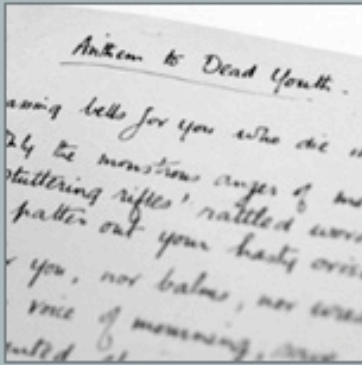 Anthem to Dead Youth.
assing bells for you who die
nly the monstrous anger of
stuttering rifles' rattled wor
patter out your hasty oris
you, nor balms, nor wrea
voice of mourning, save